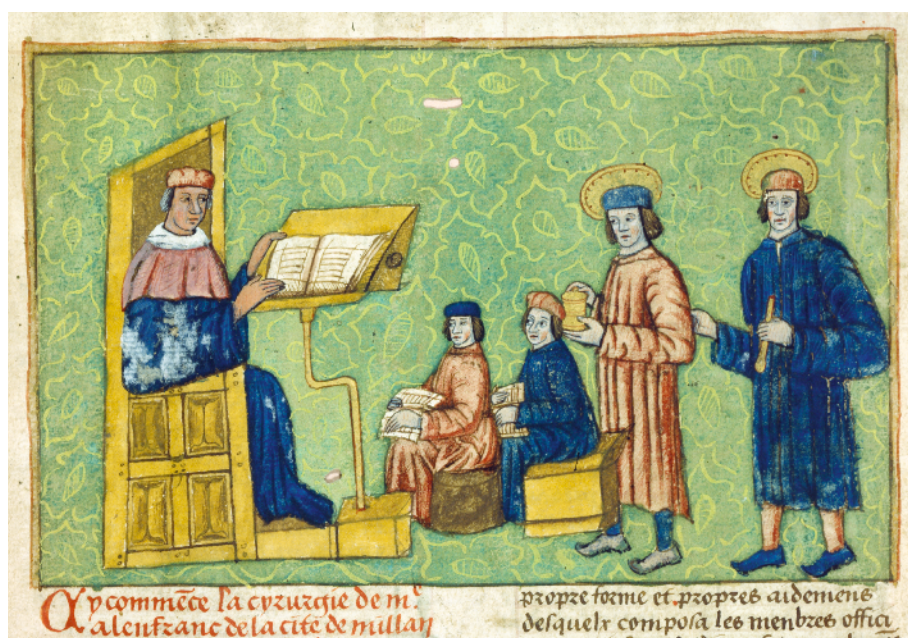 Cy commēce la cyrurgie de mᵉ
alenfranc de la cite de millan
propre forme et propres aidemens
desquelx composa les menbres offici